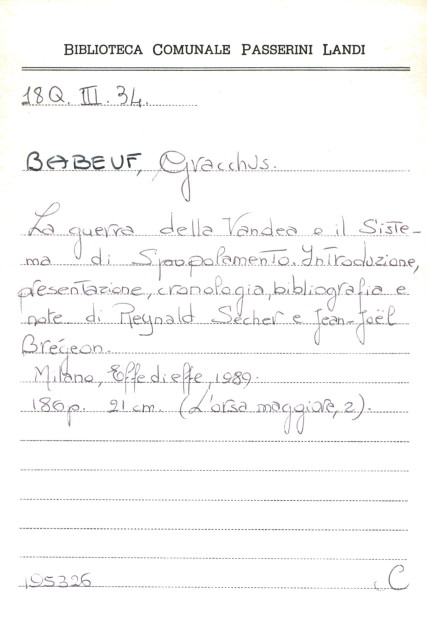 BIBLIOTECA COMUNALE PASSERINI LANDI
18Q. III. 34.
BABEUF, Gracchus.
La guerra della Vandea e il Siste-
ma di Spopolamento. Introduzione,
presentazione, cronologia, bibliografia e
note di Reynald Secher e Jean-Joël
Brégeon.
Milano, Effedieffe, 1989.
186p. 21 cm. (L'orsa maggiore, 2).
195326 C